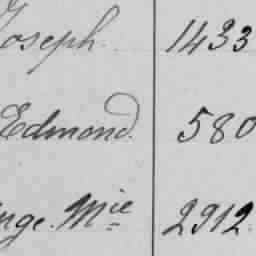 Joseph. 1433
Edmond. 580
ange. Mie 2912.